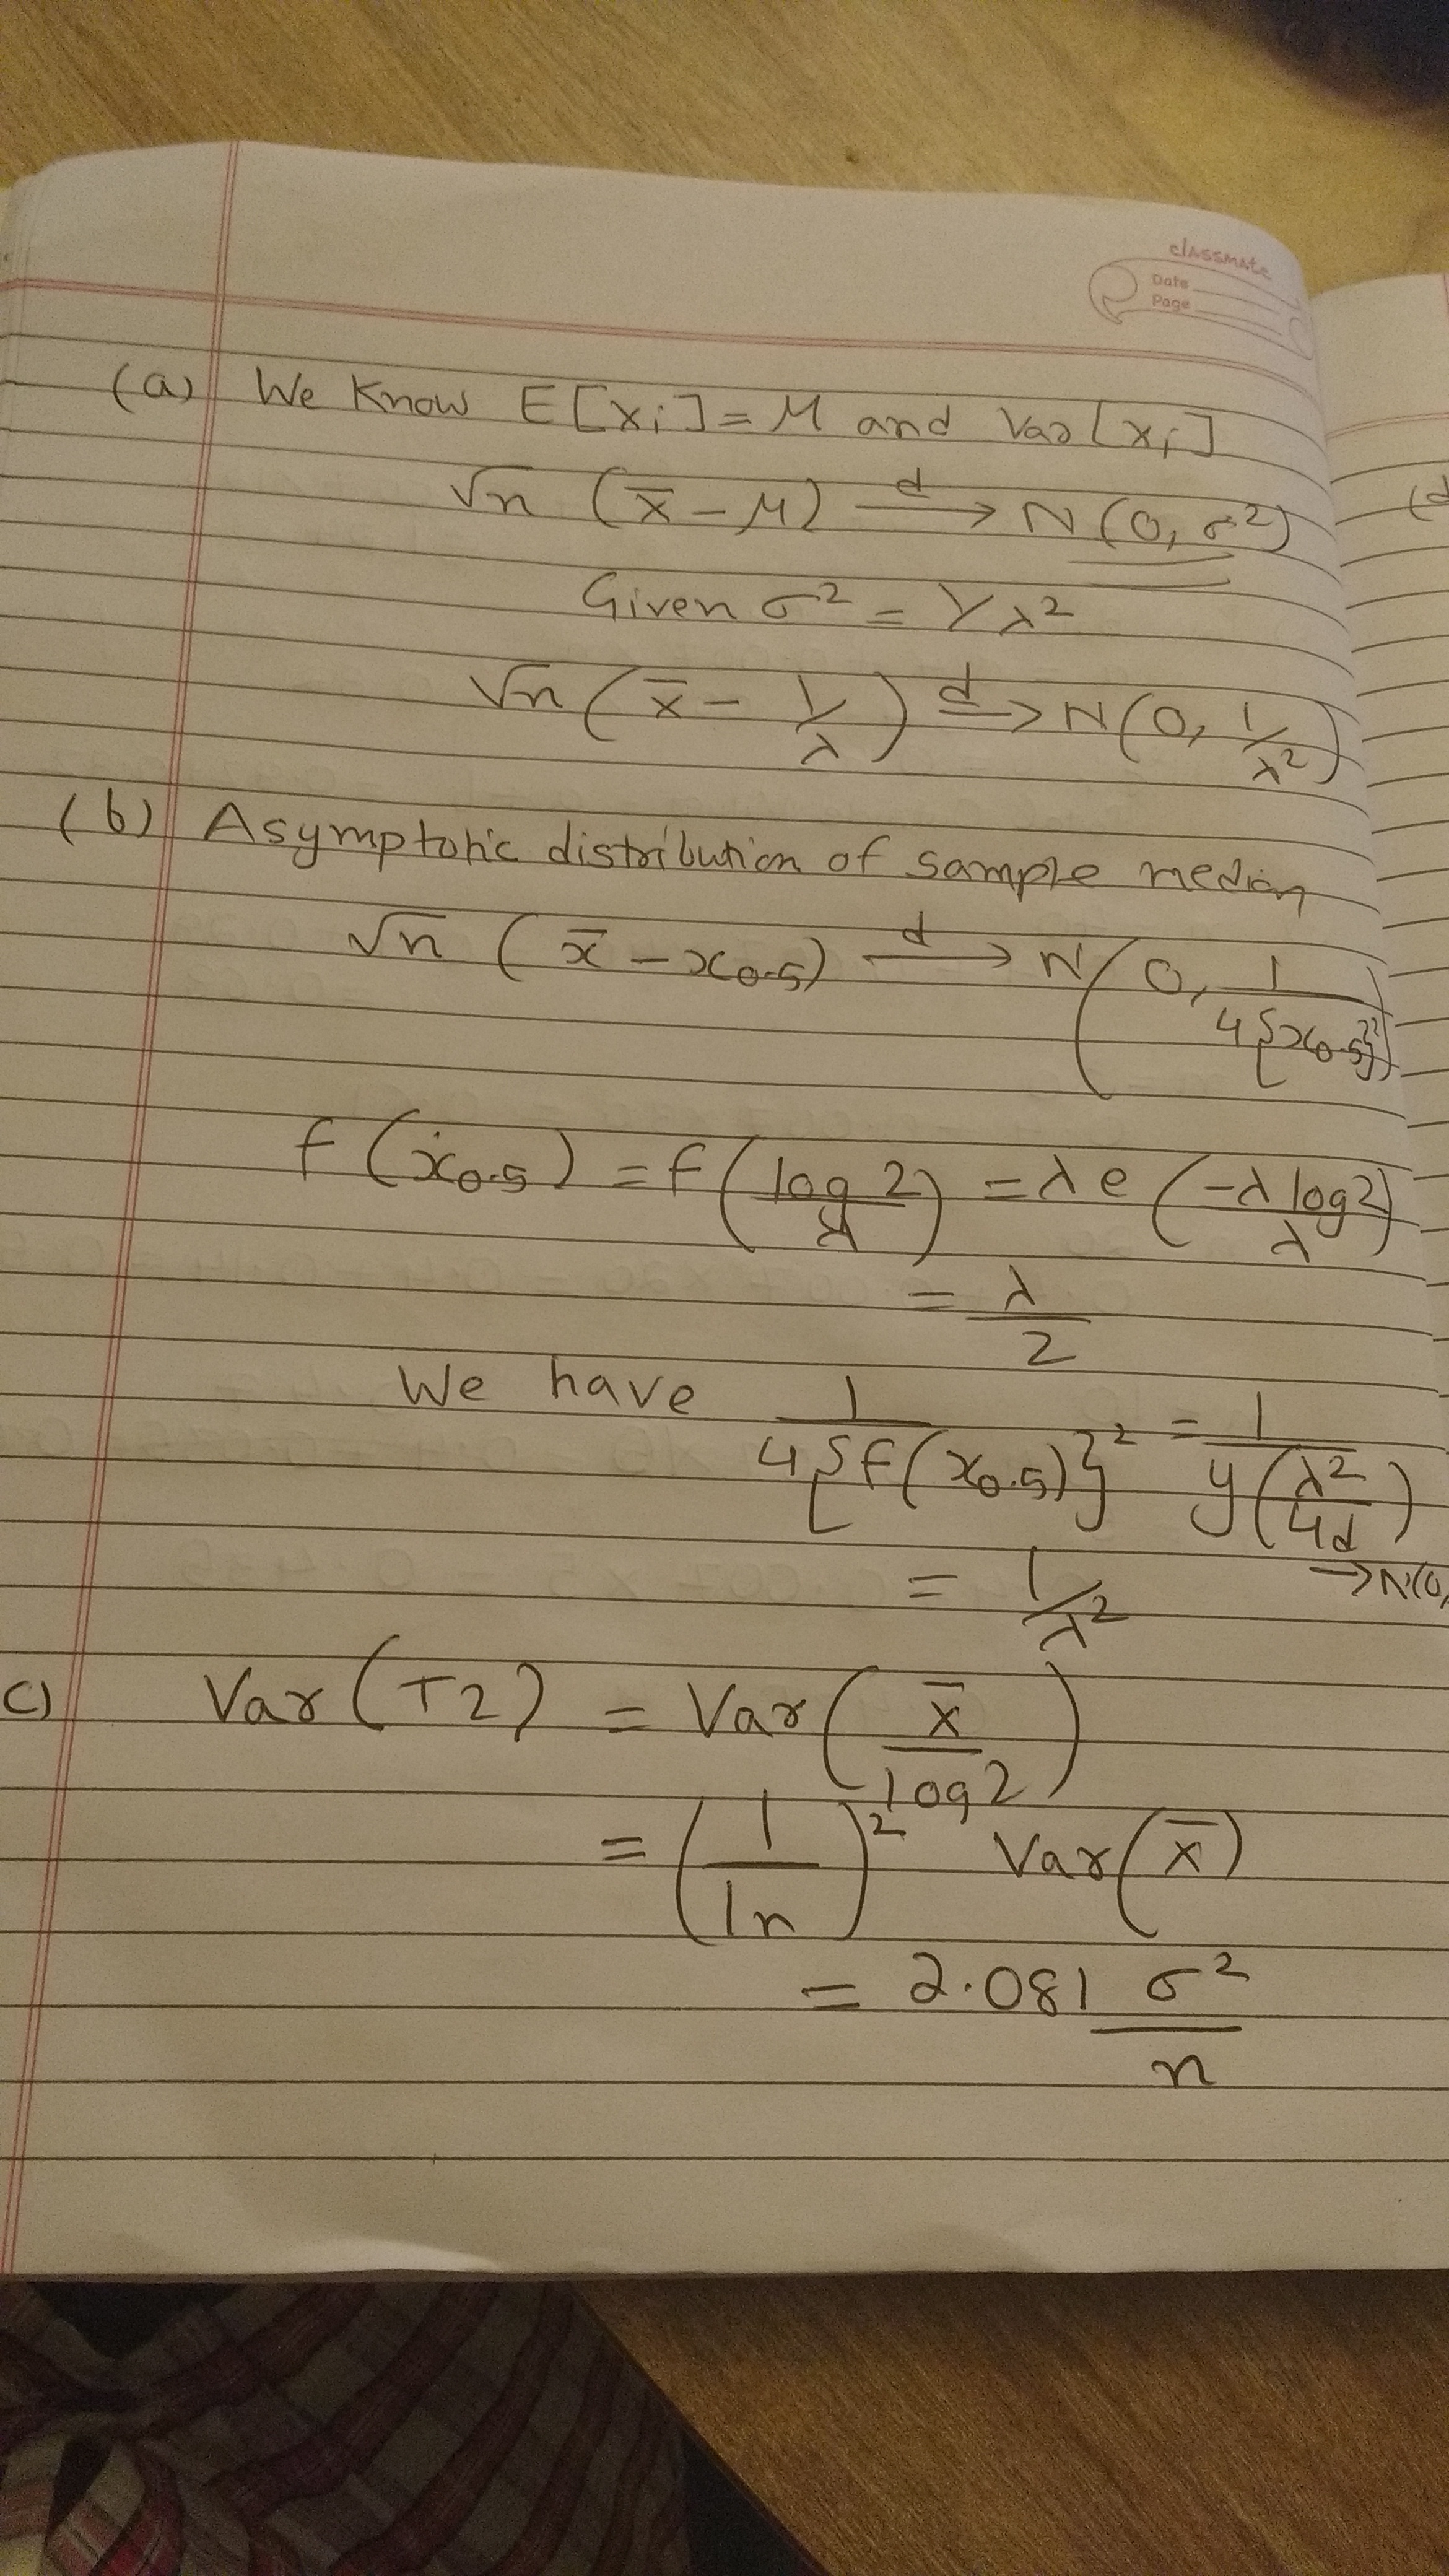 classmate
Date
Page
(a) We Know E[xi] = M and Var[xi]
√n (x̄ - M) d→ N(0, σ²)
(d
Given σ² = 1/λ²
√n (x̄ - 1/λ) d→ N(0, 1/λ²)
(b) Asymptotic distribution of sample median
√n (x̄ - x0.5) d→ N(0, 1/4{x0.5}²)
f(x0.5) = f(log 2/λ) = λe(-λ log2/λ)
= λ/2
We have 1/4{f(x0.5)}² = 1/y(λ²/4d)
= 1/λ² → N(0,
c) Var(T2) = Var(x̄/log2)
= (1/ln)² Var(x̄)
= 2.081 σ²/n